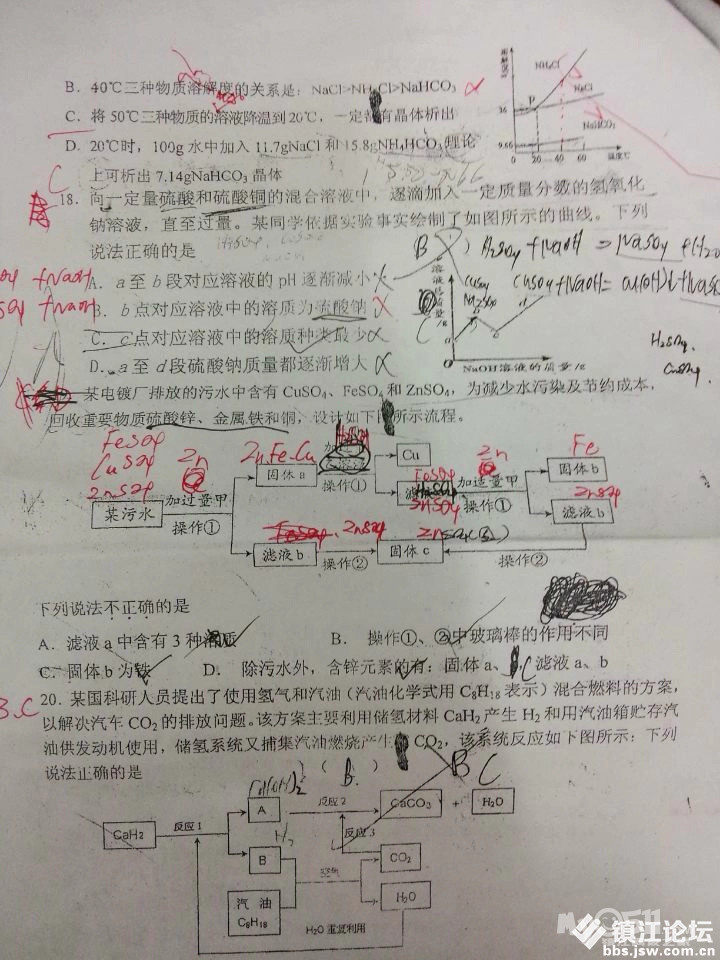 B. 40℃三种物质溶解度的关系是: NaCl>NH₄Cl>NaHCO₃
C. 将 50℃三种物质的溶液降温到 20℃，一定都有晶体析出
D. 20℃时，100g 水中加入 11.7gNaCl 和 15.8gNH₄HCO₃理论
上可析出 7.14gNaHCO₃晶体
NH₄Cl
NaCl
NaHCO₃
36
P
9.60
0 20 40 60 温度℃
C
18. 向一定量硫酸和硫酸铜的混合溶液中，逐滴加入一定质量分数的氢氧化
钠溶液，直至过量。某同学依据实验事实绘制了如图所示的曲线。下列
说法正确的是
B
H₂SO₄ + NaOH = NaSO₄ + H₂O
A. a 至 b 段对应溶液的 pH 逐渐减小
+NaOH
CuSO₄+NaOH=
B. b 点对应溶液中的溶质为硫酸钠
+NaOH
C. c 点对应溶液中的溶质种类最少
D. a 至 d 段硫酸钠质量都逐渐增大
NaOH 溶液的质量/g
H₂SO₄
CuSO₄
某电镀厂排放的污水中含有 CuSO₄、FeSO₄ 和 ZnSO₄，为减少水污染及节约成本，
回收重要物质硫酸锌、金属铁和铜，设计如下图所示流程。
FeSO₄
CuSO₄
ZnSO₄
Zn
Zn.Fe.Cu
Zn
Fe
某污水
加过量甲
操作①
固体 a
操作①
Cu
FeSO₄
ZnSO₄
加适量甲
操作①
固体 b
ZnSO₄
滤液 b
滤液 b
ZnSO₄
操作②
固体 c
操作②
下列说法不正确的是
A. 滤液 a 中含有 3 种溶质
B. 操作①、②中玻璃棒的作用不同
C. 固体 b 为铁
D. 除污水外，含锌元素的有: 固体 a、 c 滤液 a、b
B.C
20. 某国科研人员提出了使用氢气和汽油（汽油化学式用 C₈H₁₈ 表示）混合燃料的方案，
以解决汽车 CO₂ 的排放问题。该方案主要利用储氢材料 CaH₂ 产生 H₂ 和用汽油箱贮存汽
油供发动机使用，储氢系统又捕集汽油燃烧产生 CO₂，该系统反应如下图所示: 下列
说法正确的是 （ B ）
B C
Ca(OH)₂
CaH₂
反应 1
A
反应 2
CaCO₃ + H₂O
H₂
反应 3
B
空气
CO₂
汽 油
C₈H₁₈
H₂O
H₂O 重复利用
镇江论坛
bbs.jsw.com.cn